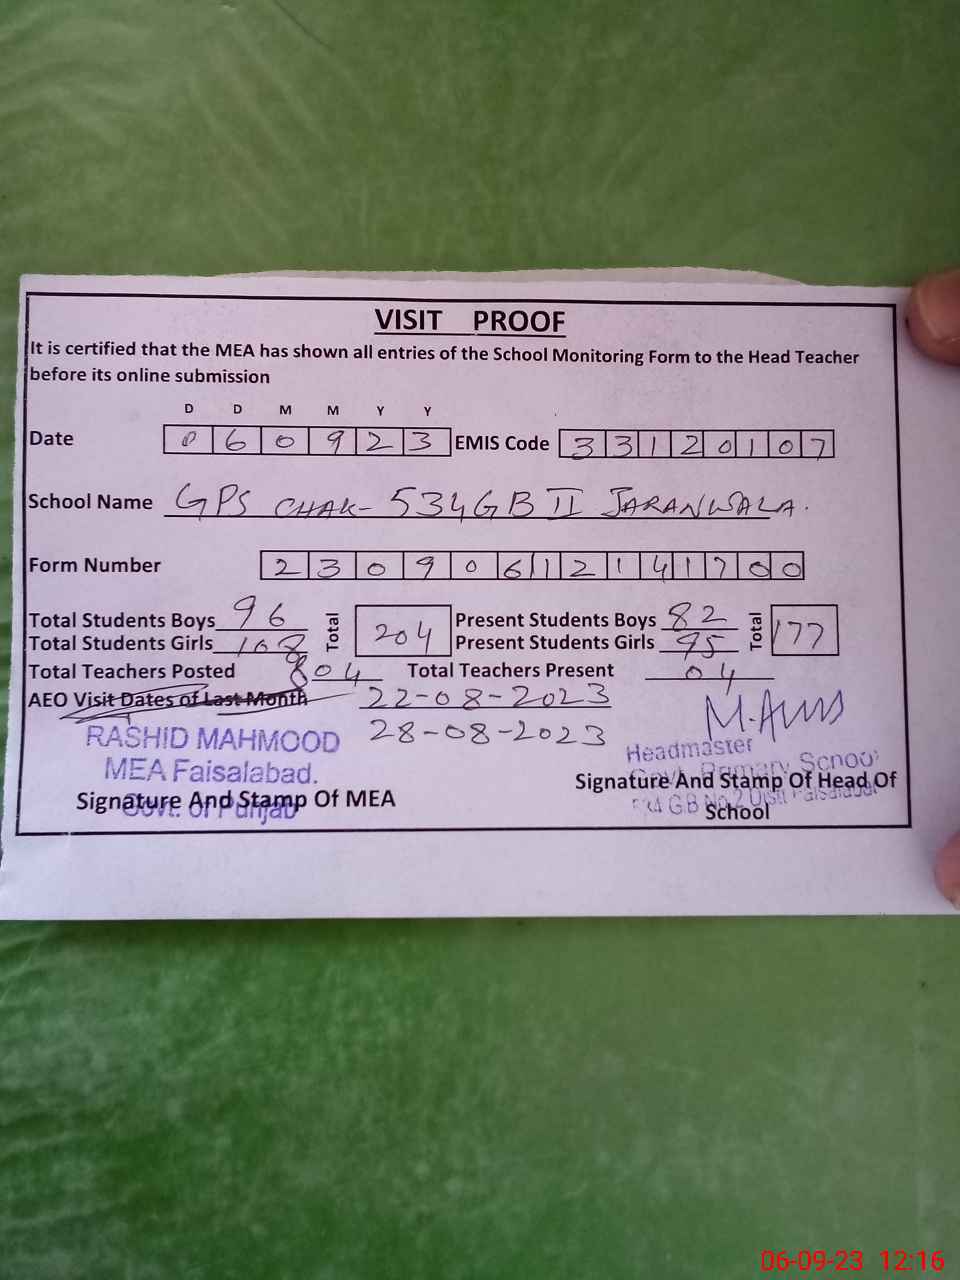 VISIT PROOF
It is certified that the MEA has shown all entries of the School Monitoring Form to the Head Teacher
before its online submission
D D M M Y Y
Date 0 6 0 9 2 3 EMIS Code 3 3 1 2 0 1 0 7
School Name GPS CHAK- 534GB II JARANWALA.
Form Number 2 3 0 9 0 6 1 2 1 4 1 7 0 0
Total Students Boys 96 Total 204 Present Students Boys 82 Total 177
Total Students Girls 108 Present Students Girls 95
Total Teachers Posted 04 Total Teachers Present 04
AEO Visit Dates of Last Month 22-08-2023
28-08-2023
RASHID MAHMOOD
MEA Faisalabad.
Govt. of Punjab
Signature And Stamp Of MEA
Headmaster
Govt. Primary School
Signature And Stamp Of Head Of
G.B No.2 Distt Faisalabad
School
06-09-23 12:16